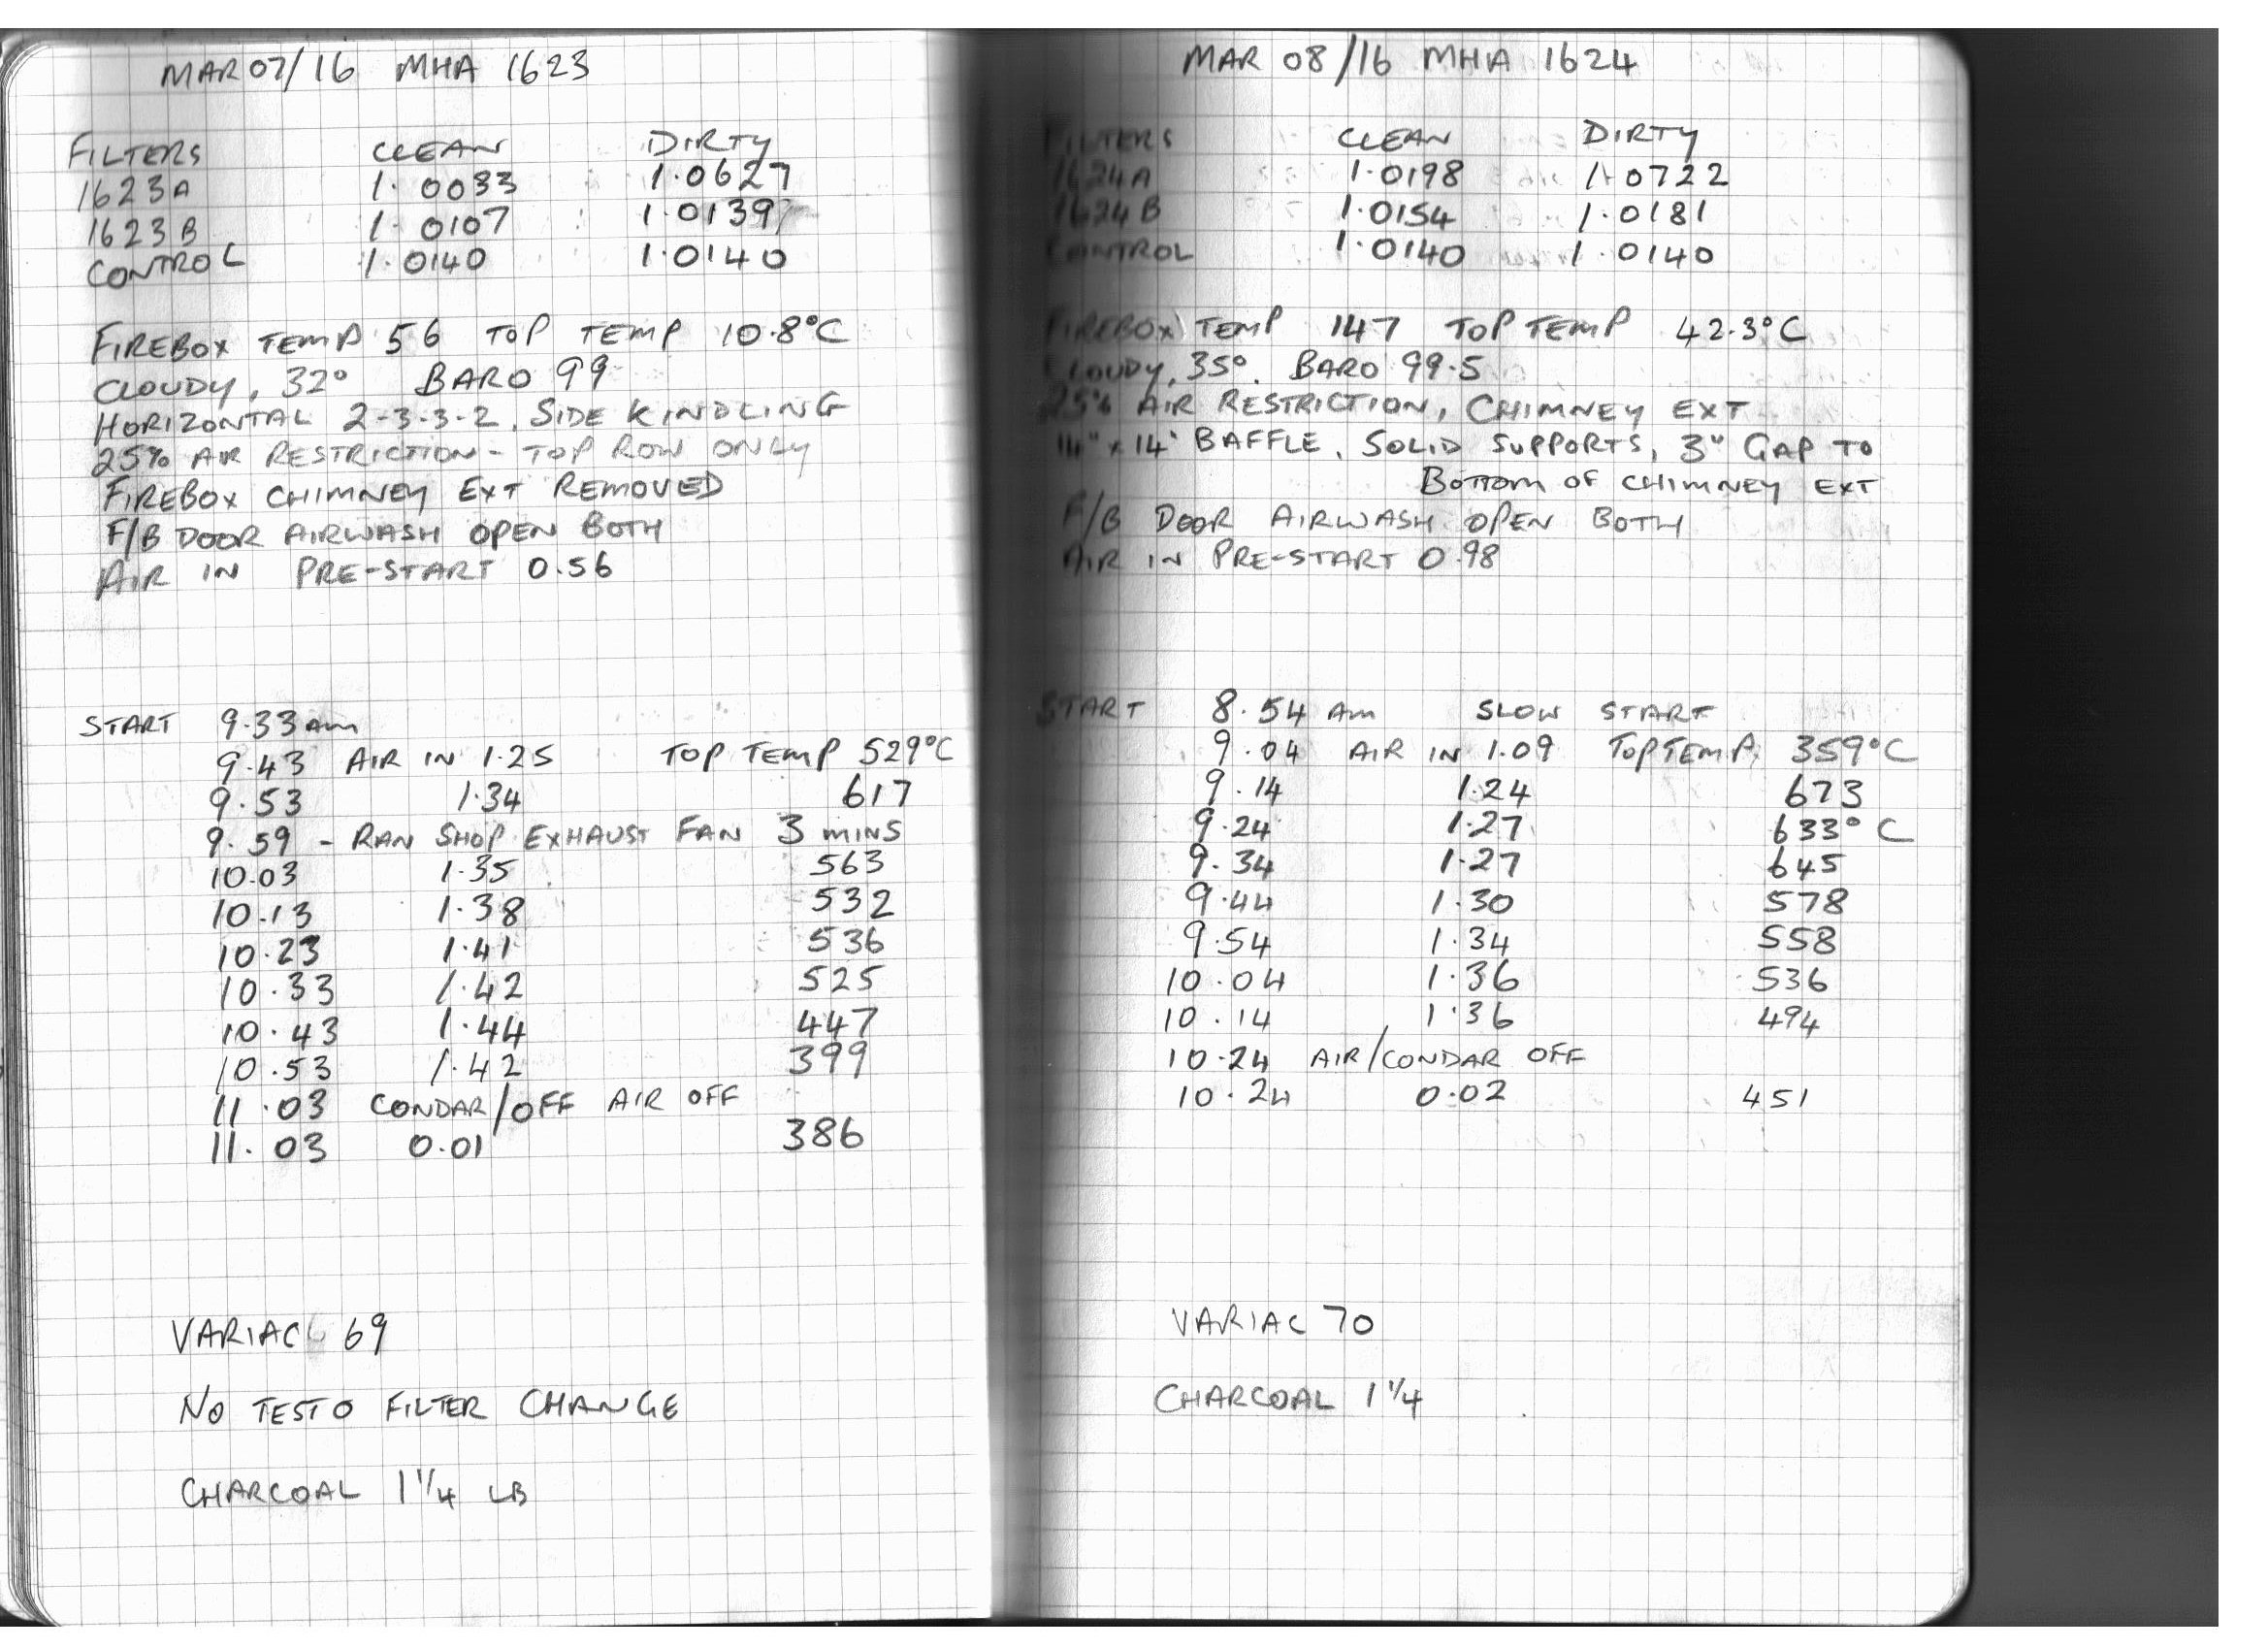 MAR 07/16 MHA 1623
FILTERS CLEAN DIRTY
1623A 1.0033 1.0627
1623B 1.0107 1.0139
CONTROL 1.0140 1.0140
FIREBOX TEMP 56 TOP TEMP 10.8°C
CLOUDY, 32° BARO 99
HORIZONTAL 2-3-3-2, SIDE KINDLING
25% AIR RESTRICTION - TOP ROW ONLY
FIREBOX CHIMNEY EXT REMOVED
F/B DOOR AIRWASH OPEN BOTH
AIR IN PRE-START 0.56
START 9.33 am
9.43 AIR IN 1.25 TOP TEMP 529°C
9.53 1.34 617
9.59 - RAN SHOP EXHAUST FAN 3 MINS
10.03 1.35 563
10.13 1.38 532
10.23 1.41 536
10.33 1.42 525
10.43 1.44 447
10.53 1.42 399
11.03 CONDAR/OFF AIR OFF
11.03 0.01 386
VARIAC 69
NO TESTO FILTER CHANGE
CHARCOAL 1 1/4 LB
MAR 08/16 MHA 1624
FILTERS CLEAN DIRTY
1624A 1.0198 1.0722
1624B 1.0154 1.0181
CONTROL 1.0140 1.0140
FIREBOX TEMP 147 TOP TEMP 42.3°C
CLOUDY, 35°. BARO 99.5
25% AIR RESTRICTION, CHIMNEY EXT
14" x 14" BAFFLE, SOLID SUPPORTS, 3" GAP TO
BOTTOM OF CHIMNEY EXT
F/B DOOR AIRWASH OPEN BOTH
AIR IN PRE-START 0.98
START 8.54 AM SLOW START
9.04 AIR IN 1.09 TOP TEMP. 359°C
9.14 1.24 673
9.24 1.27 633°C
9.34 1.27 645
9.44 1.30 578
9.54 1.34 558
10.04 1.36 536
10.14 1.36 494
10.24 AIR/CONDAR OFF
10.24 0.02 451
VARIAC 70
CHARCOAL 1 1/4